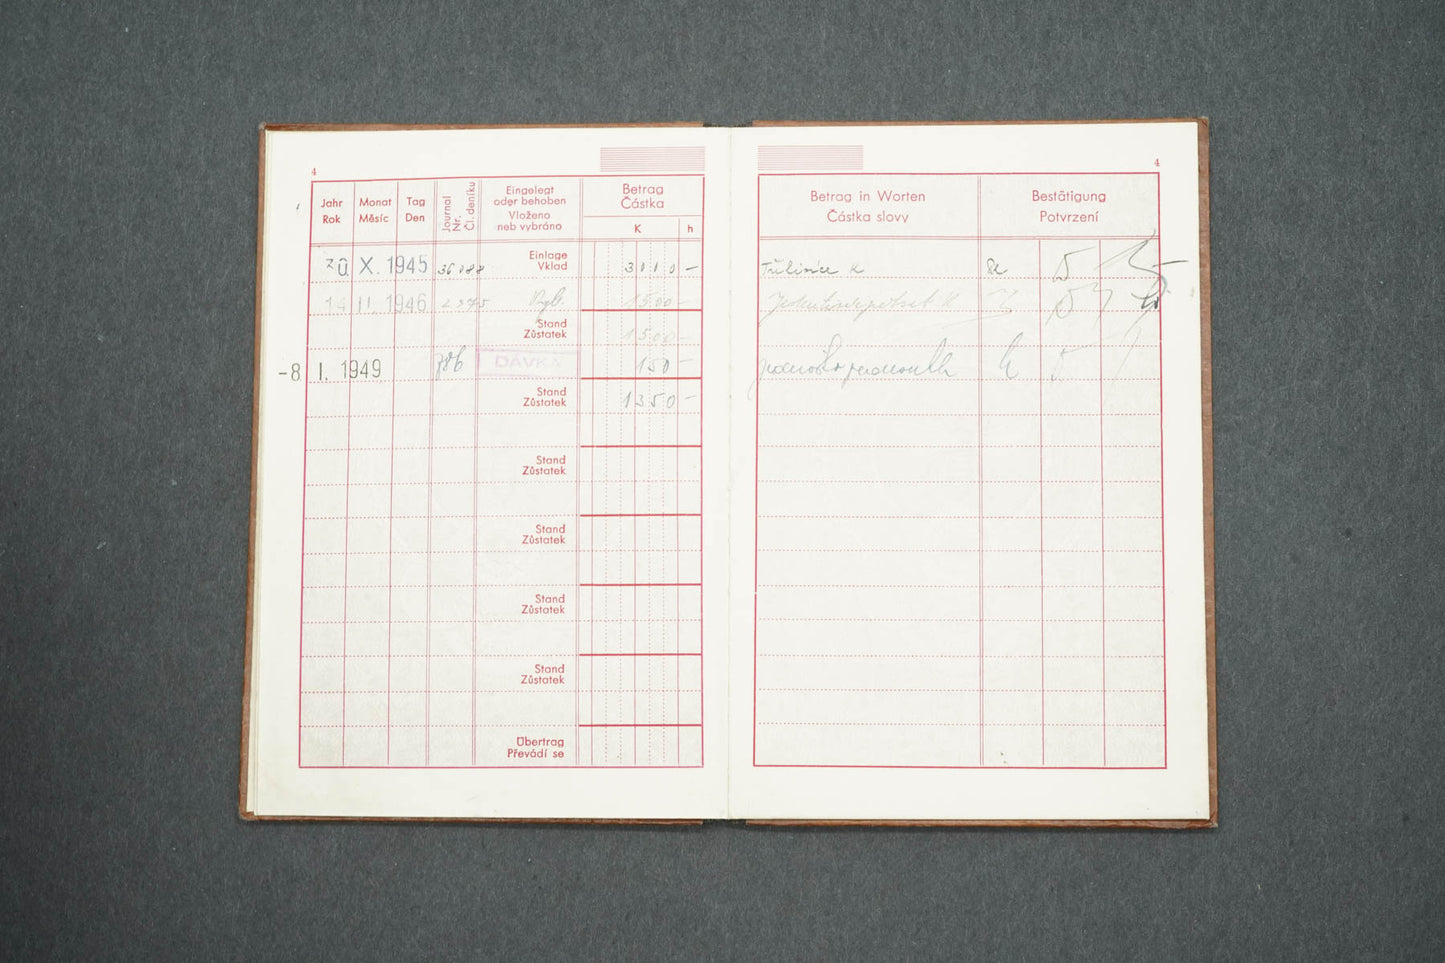 4
Jahr
Rok
Monat
Měsíc
Tag
Den
Journal Nr.
Čl. deníku
Eingelegt
oder behoben
Vloženo
neb vybráno
Betrag
Částka
K h
X. 1945
Einlage
Vklad
14 II. 1946 2375 1500-
Stand
Zůstatek
1500-
-8 I. 1949 DÁVKA 150-
Stand
Zůstatek
1350-
Stand
Zůstatek
Stand
Zůstatek
Stand
Zůstatek
Stand
Zůstatek
Übertrag
Převádí se
4
Betrag in Worten
Částka slovy
Bestätigung
Potvrzení